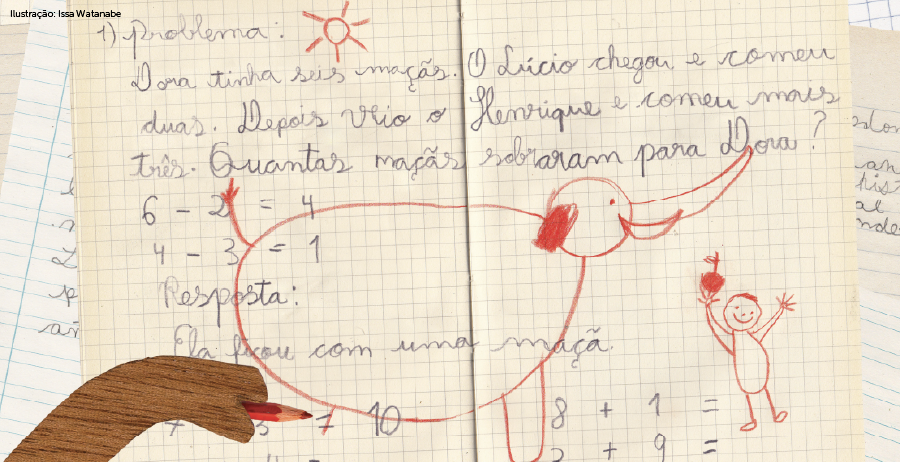 Ilustração: Issa Watanabe
1) Problema:
Dora tinha seis maçãs. O Lúcio chegou e comeu
duas. Depois veio o Henrique e comeu mais
três. Quantas maçãs sobraram para Dora?
6 - 2 = 4
4 - 3 = 1
Resposta:
Ela ficou com uma maçã.
3 = 10
8 + 1 =
+ 9 =